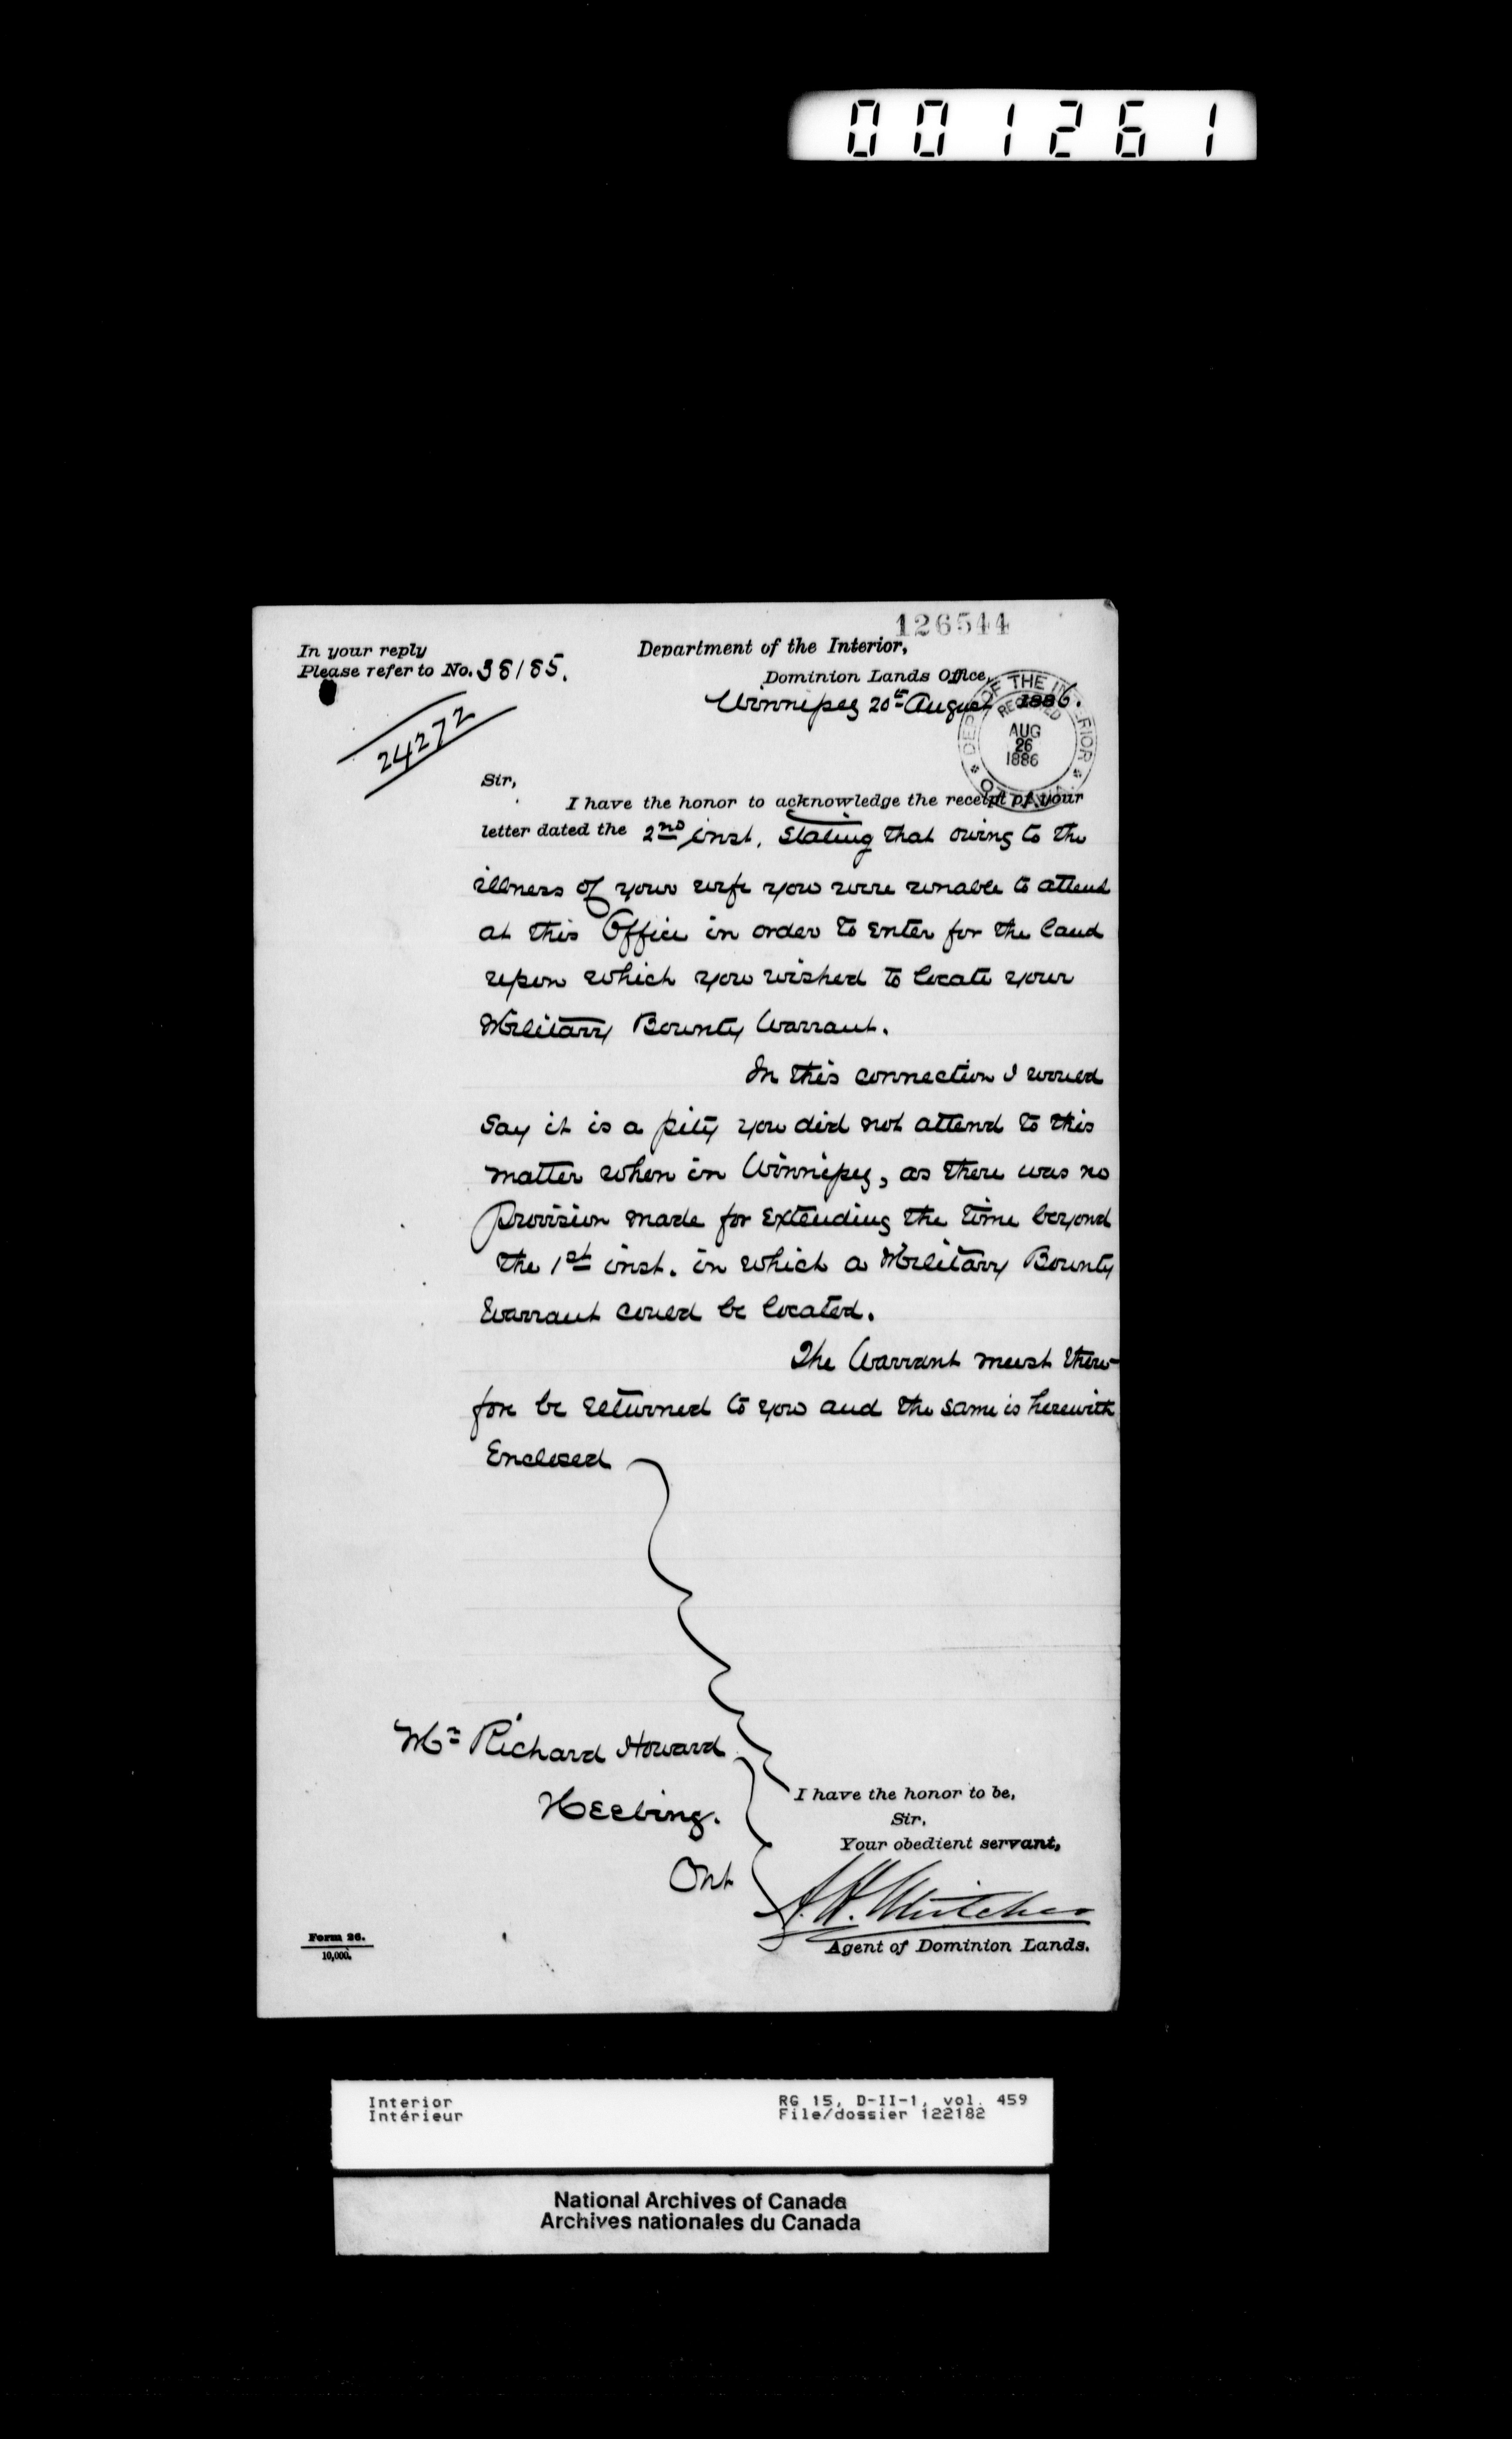 001261
126544
In your reply
Please refer to No. 38185.
Department of the Interior,
Dominion Lands Office,
Winnipeg 20th August 1886.
24272
DEPT OF THE INTERIOR
RECEIVED
AUG
26
1886
OTTAWA
Sir,
I have the honor to acknowledge the receipt of your
letter dated the 2nd inst. stating that owing to the
illness of your wife you were unable to attend
at this Office in order to enter for the land
upon which you wished to locate your
Military Bounty Warrant.
In this connection I would
say it is a pity you did not attend to this
matter when in Winnipeg, as there was no
provision made for extending the time beyond
the 1st inst. in which a Military Bounty
Warrant could be located.
The Warrant must there-
fore be returned to you and the same is herewith
Enclosed
Mr Richard Howard
Neebing.
Ont
I have the honor to be,
Sir,
Your obedient servant,
A.H. Whitcher
Agent of Dominion Lands.
Form 26.
10,000.
Interior
Intérieur
RG 15, D-II-1, vol. 459
File/dossier 122182
National Archives of Canada
Archives nationales du Canada